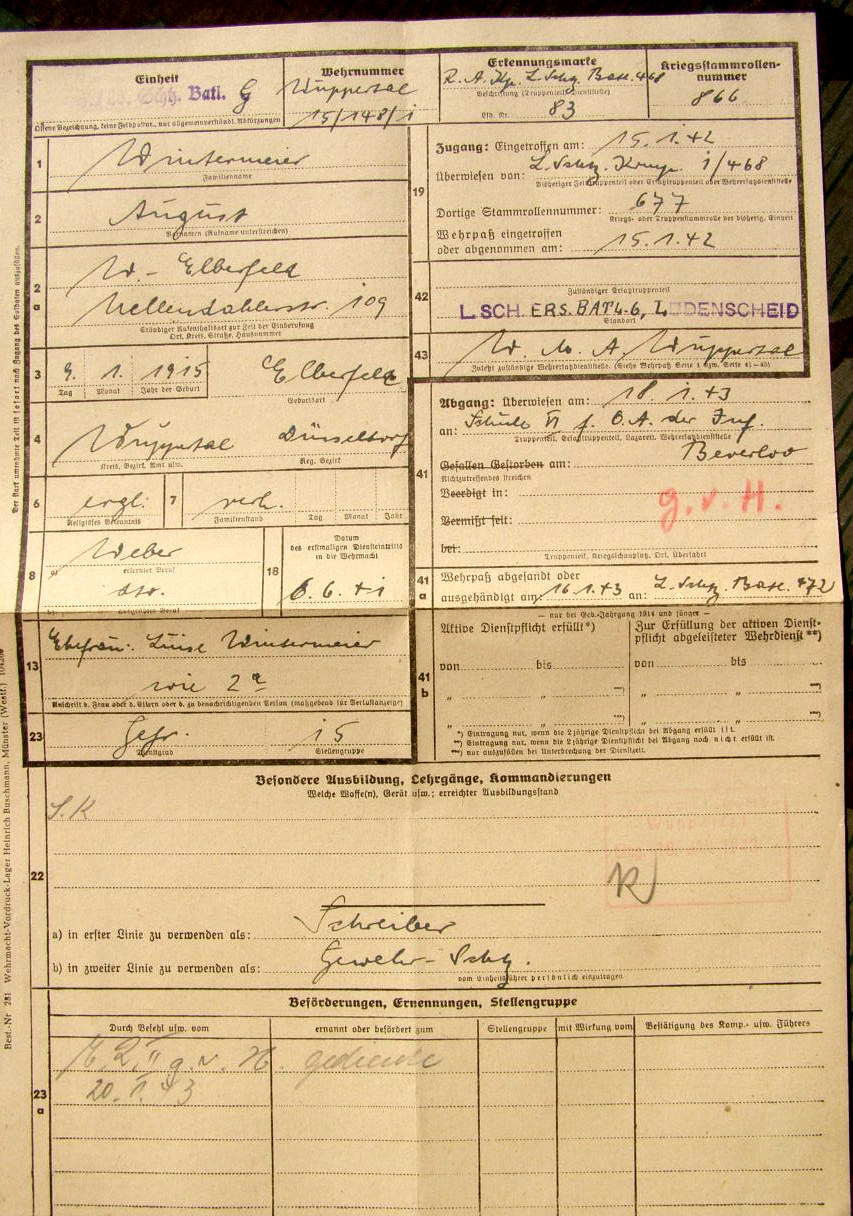 Einheit
Schtz. Batl. G
Offene Bezeichnung, keine Feldpostnr., nur allgemeinverständl. Abkürzungen
Wehrnummer
Wuppertal
15/148/1
Erkennungsmarke
L. Schtz. Batl. 468
Beschriftung (Truppenteil Dienststelle)
Lfd. Nr. 83
Kriegsstammrollen-
nummer
866
1 Wintermeier
Familienname
2 August
Vornamen (Rufname unterstreichen)
2a W.- Elberfeld
109
Ständiger Aufenthaltsort zur Zeit der Einberufung
Ort, Kreis, Straße, Hausnummer
3 9. 1. 1915 Elberfeld
Tag Monat Jahr der Geburt Geburtsort
4 Wuppertal Düsseldorf
Kreis, Bezirk, Amt usw. Reg. Bezirk
6 7 verh.
Religiöses Bekenntnis Familienstand Tag Monat Jahr
8 a) Weber
erlernter Beruf
dto.
b) ausgeübter Beruf
18 Datum
des erstmaligen Diensteintritts
in die Wehrmacht
6. 6. 41
13 Ehefrau: Luise Wintermeier
wie 2a
Anschrift d. Frau oder d. Eltern oder d. zu benachrichtigenden Person (maßgebend für Verlustanzeige)
23 Gefr. 15
Dienstgrad Stellengruppe
19 Zugang: Eingetroffen am: 15. 1. 42
Überwiesen von: L. Schtz. Komp. 1/468
Bisheriger Feldtruppenteil oder Ersatztruppenteil oder Wehrersatzdienststelle
Dortige Stammrollennummer: 677
Kriegs- oder Truppenstammrolle der bisherig. Einheit
Wehrpaß eingetroffen
oder abgenommen am: 15. 1. 42
42 Zuständiger Ersatztruppenteil
L. SCH. ERS. BATL. 6, LÜDENSCHEID
Standort
43 W. M. A. Wuppertal
Zuletzt zuständige Wehrersatzdienststelle. (Siehe Wehrpaß Seite 1 bzw. Seite 41-45)
41 Abgang: Überwiesen am: 18. 1. 43
an: Schule VI f. O.A. der Inf.
Truppenteil, Ersatztruppenteil, Lazarett, Wehrersatzdienststelle
Beverloo
Gefallen Gestorben am:
Nichtzutreffendes streichen
Beerdigt in:
g. v. H.
Vermißt seit:
bei:
Truppenteil, Kriegsschauplatz, Ort, Überfahrt
41a Wehrpaß abgesandt oder
ausgehändigt am: 16. 1. 43 an: L. Schtz. Batl. 472
41b — nur bei Geb.-Jahrgang 1914 und jünger —
Aktive Dienstpflicht erfüllt*)
von bis
" " **)
" " **)
Zur Erfüllung der aktiven Dienst-
pflicht abgeleisteter Wehrdienst**)
von bis
" " ***)
" " ***)
*) Eintragung nur, wenn die 2 jährige Dienstpflicht bei Abgang erfüllt ist.
**) Eintragung nur, wenn die 2 jährige Dienstpflicht bei Abgang noch nicht erfüllt ist.
***) nur auszufüllen bei Unterbrechung der Dienstzeit.
Besondere Ausbildung, Lehrgänge, Kommandierungen
Welche Waffe(n), Gerät usw.; erreichter Ausbildungsstand
S.K
22
a) in erster Linie zu verwenden als: Schreiber
b) in zweiter Linie zu verwenden als: Gewehr-Schtz.
vom Einheitsführer persönlich einzutragen
Beförderungen, Ernennungen, Stellengruppe
Durch Befehl usw. vom ernannt oder befördert zum Stellengruppe mit Wirkung vom Bestätigung des Komp.- usw. Führers
II g. v. H. gediente
20. 1. 43
23a
Best.-Nr 281 Wehrmacht-Vordruck-Lager Heinrich Buschmann, Münster (Westf.)